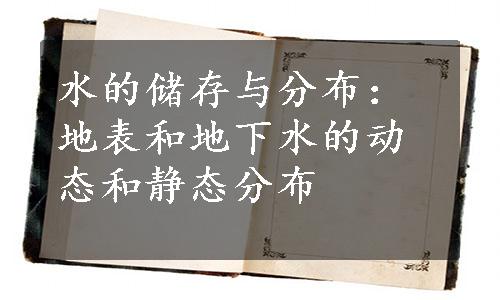 水的储存与分布：
地表和地下水的动
态和静态分布